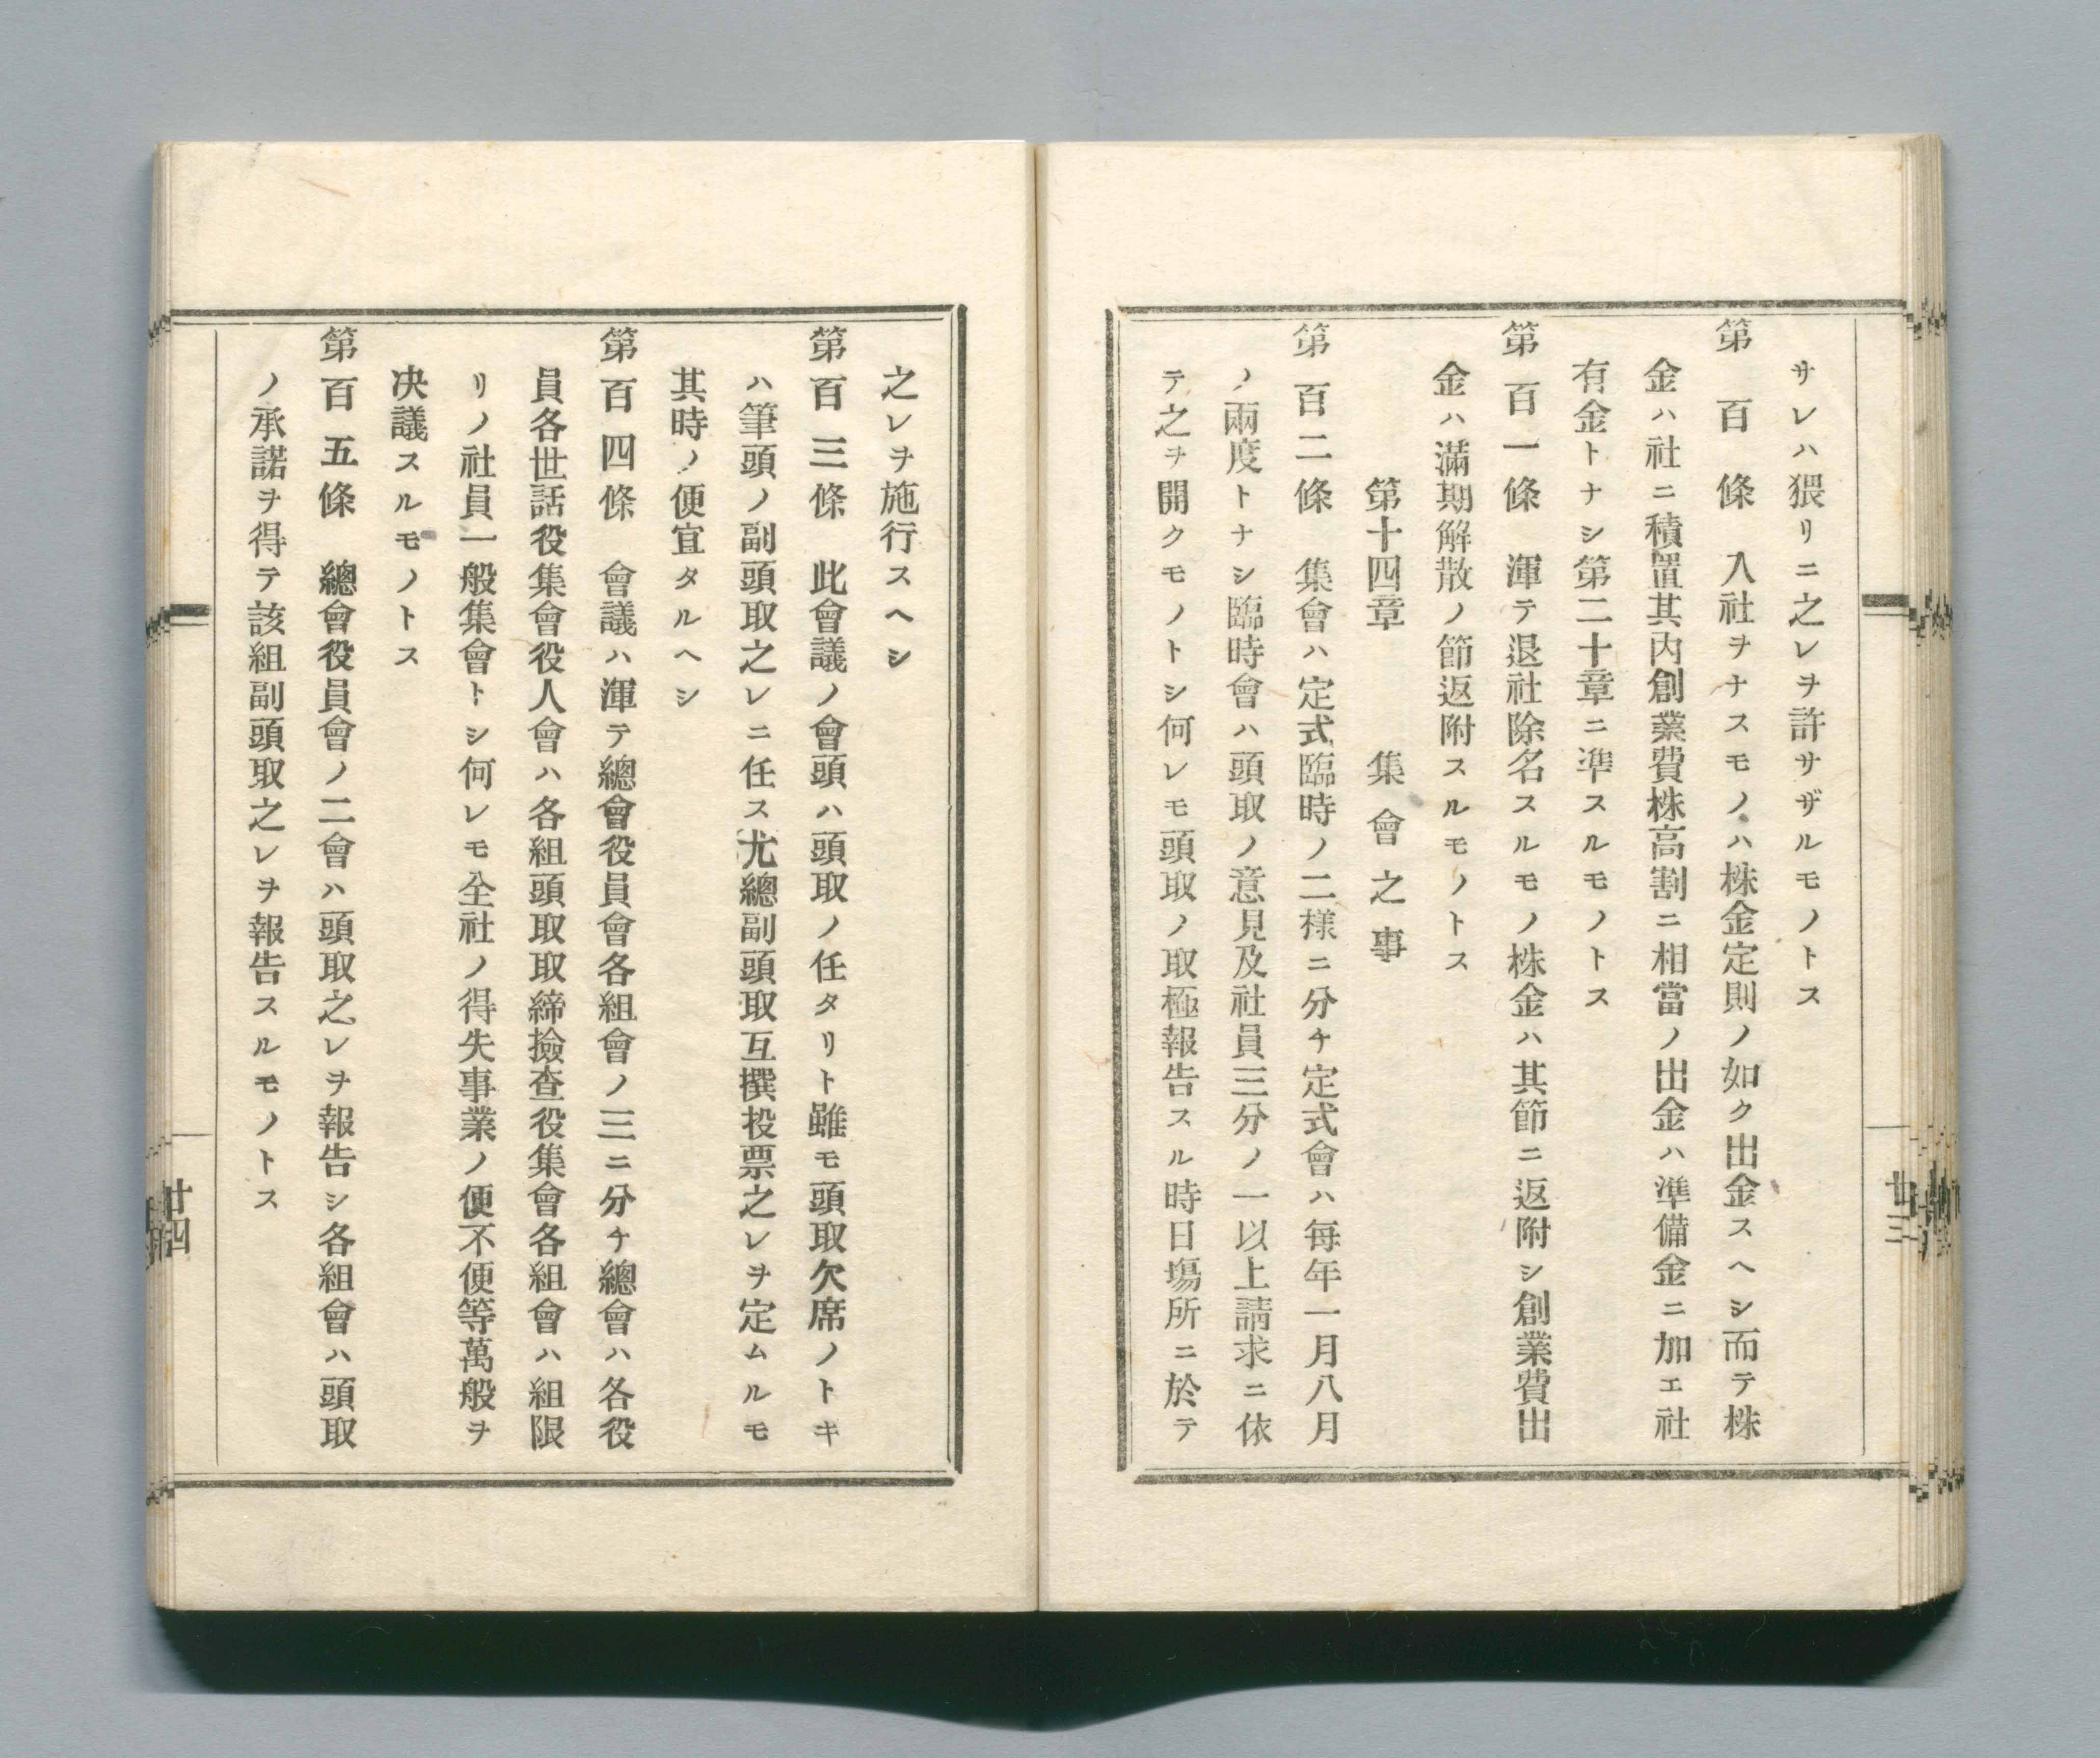 サレハ猥リニ之レヲ許サザルモノトス
第百條 入社ヲナスモノハ株金定則ノ如ク出金スヘシ而テ株
金ハ社ニ積置其内創業費株高割ニ相當ノ出金ハ準備金ニ加エ社
有金トナシ第二十章ニ準スルモノトス
第百一條 渾テ退社除名スルモノ株金ハ其節ニ返附シ創業費出
金ハ滿期解散ノ節返附スルモノトス
第十四章 集會之事
第百二條 集會ハ定式臨時ノ二様ニ分チ定式會ハ毎年一月八月
ノ兩度トナシ臨時會ハ頭取ノ意見及社員三分ノ一以上請求ニ依
テ之ヲ開クモノトシ何レモ頭取ノ取極報告スル時日塲所ニ於テ
廿三
之レヲ施行スヘシ
第百三條 此會議ノ會頭ハ頭取ノ任タリト雖モ頭取欠席ノトキ
ハ筆頭ノ副頭取之レニ任ス尤總副頭取互撰投票之レヲ定ムルモ
其時ノ便宜タルヘシ
第百四條 會議ハ渾テ總會役員會各組會ノ三ニ分チ總會ハ各役
員各世話役集會役人會ハ各組頭取取締撿查役集會各組會ハ組限
リノ社員一般集會トシ何レモ全社ノ得失事業ノ便不便等萬般ヲ
决議スルモノトス
第百五條 總會役員會ノ二會ハ頭取之レヲ報告シ各組會ハ頭取
ノ承諾ヲ得テ該組副頭取之レヲ報告スルモノトス
廿四